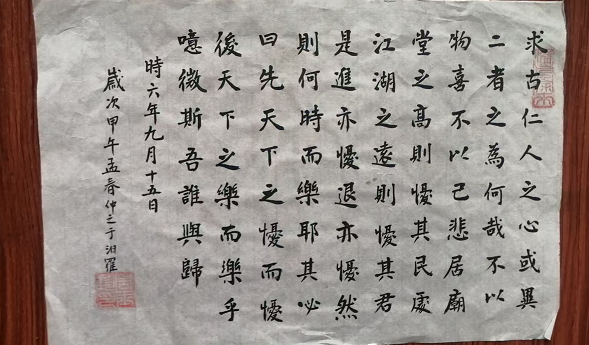 求古仁人之心或異
二者之為何哉不以
物喜不以己悲居廟
堂之高則憂其民處
江湖之遠則憂其君
是進亦憂退亦憂然
則何時而樂耶其必
曰先天下之憂而憂
後天下之樂而樂乎
噫微斯吾誰與歸
時六年九月十五日
歲次甲午孟春仲之于汨羅